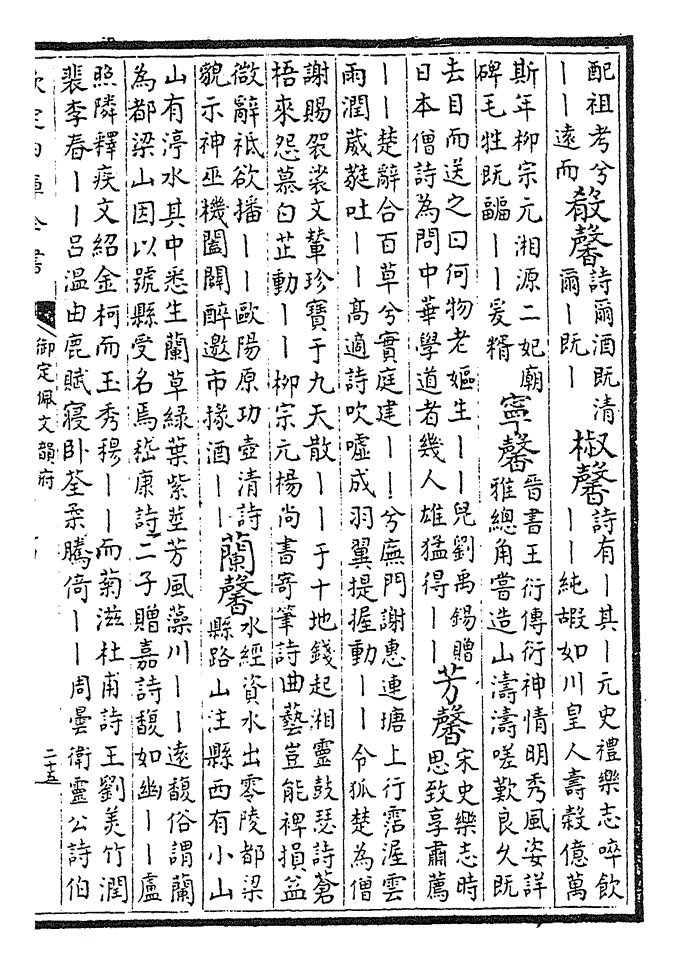 配祖考兮
丨丨遠而
殽馨
詩爾酒既清
爾丨既丨
椒馨
詩有丨其丨元史禮樂志啐飲
丨丨純嘏如川皇人壽穀億萬
斯年柳宗元湘源二妃廟
碑毛牲既疈丨丨爰糈
寧馨
晉書王衍傳衍神情明秀風姿詳
雅總角嘗造山濤濤嗟歎良久既
去目而送之曰何物老嫗生丨丨兒劉禹錫贈
日本僧詩為問中華學道者幾人雄猛得丨丨
芳馨
宋史樂志時
思致享肅薦
丨丨楚辭合百草兮實庭建丨丨兮廡門謝惠連塘上行霑渥雲
雨潤葳蕤吐丨丨高適詩吹噓成羽翼提握動丨丨令狐楚為僧
謝賜袈裟文輦珍寶于九天散丨丨于十地錢起湘靈鼓瑟詩蒼
梧來怨慕白芷動丨丨柳宗元楊尚書寄筆詩曲藝豈能裨損益
微辭祗欲播丨丨歐陽原功壺清詩
貌示神巫機闔闢醉邀市掾酒丨丨
蘭馨
水經資水出零陵都梁
縣路山注縣西有小山
山有渟水其中悉生蘭草綠葉紫莖芳風藻川丨丨遠馥俗謂蘭
為都梁山因以號縣受名焉嵇康詩二子贈嘉詩馥如幽丨丨盧
照隣釋疾文紹金柯而玉秀穆丨丨而菊滋杜甫詩王劉美竹潤
裴李春丨丨呂溫由鹿賦寢卧荃柔騰倚丨丨周曇衛靈公詩伯
欽定四庫全書
御定佩文韻府
二十五